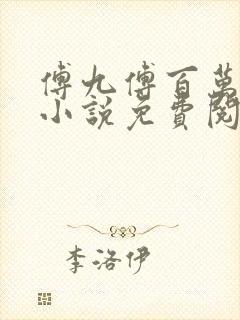 傅九傅百萬
小說免費閱
李洛伊